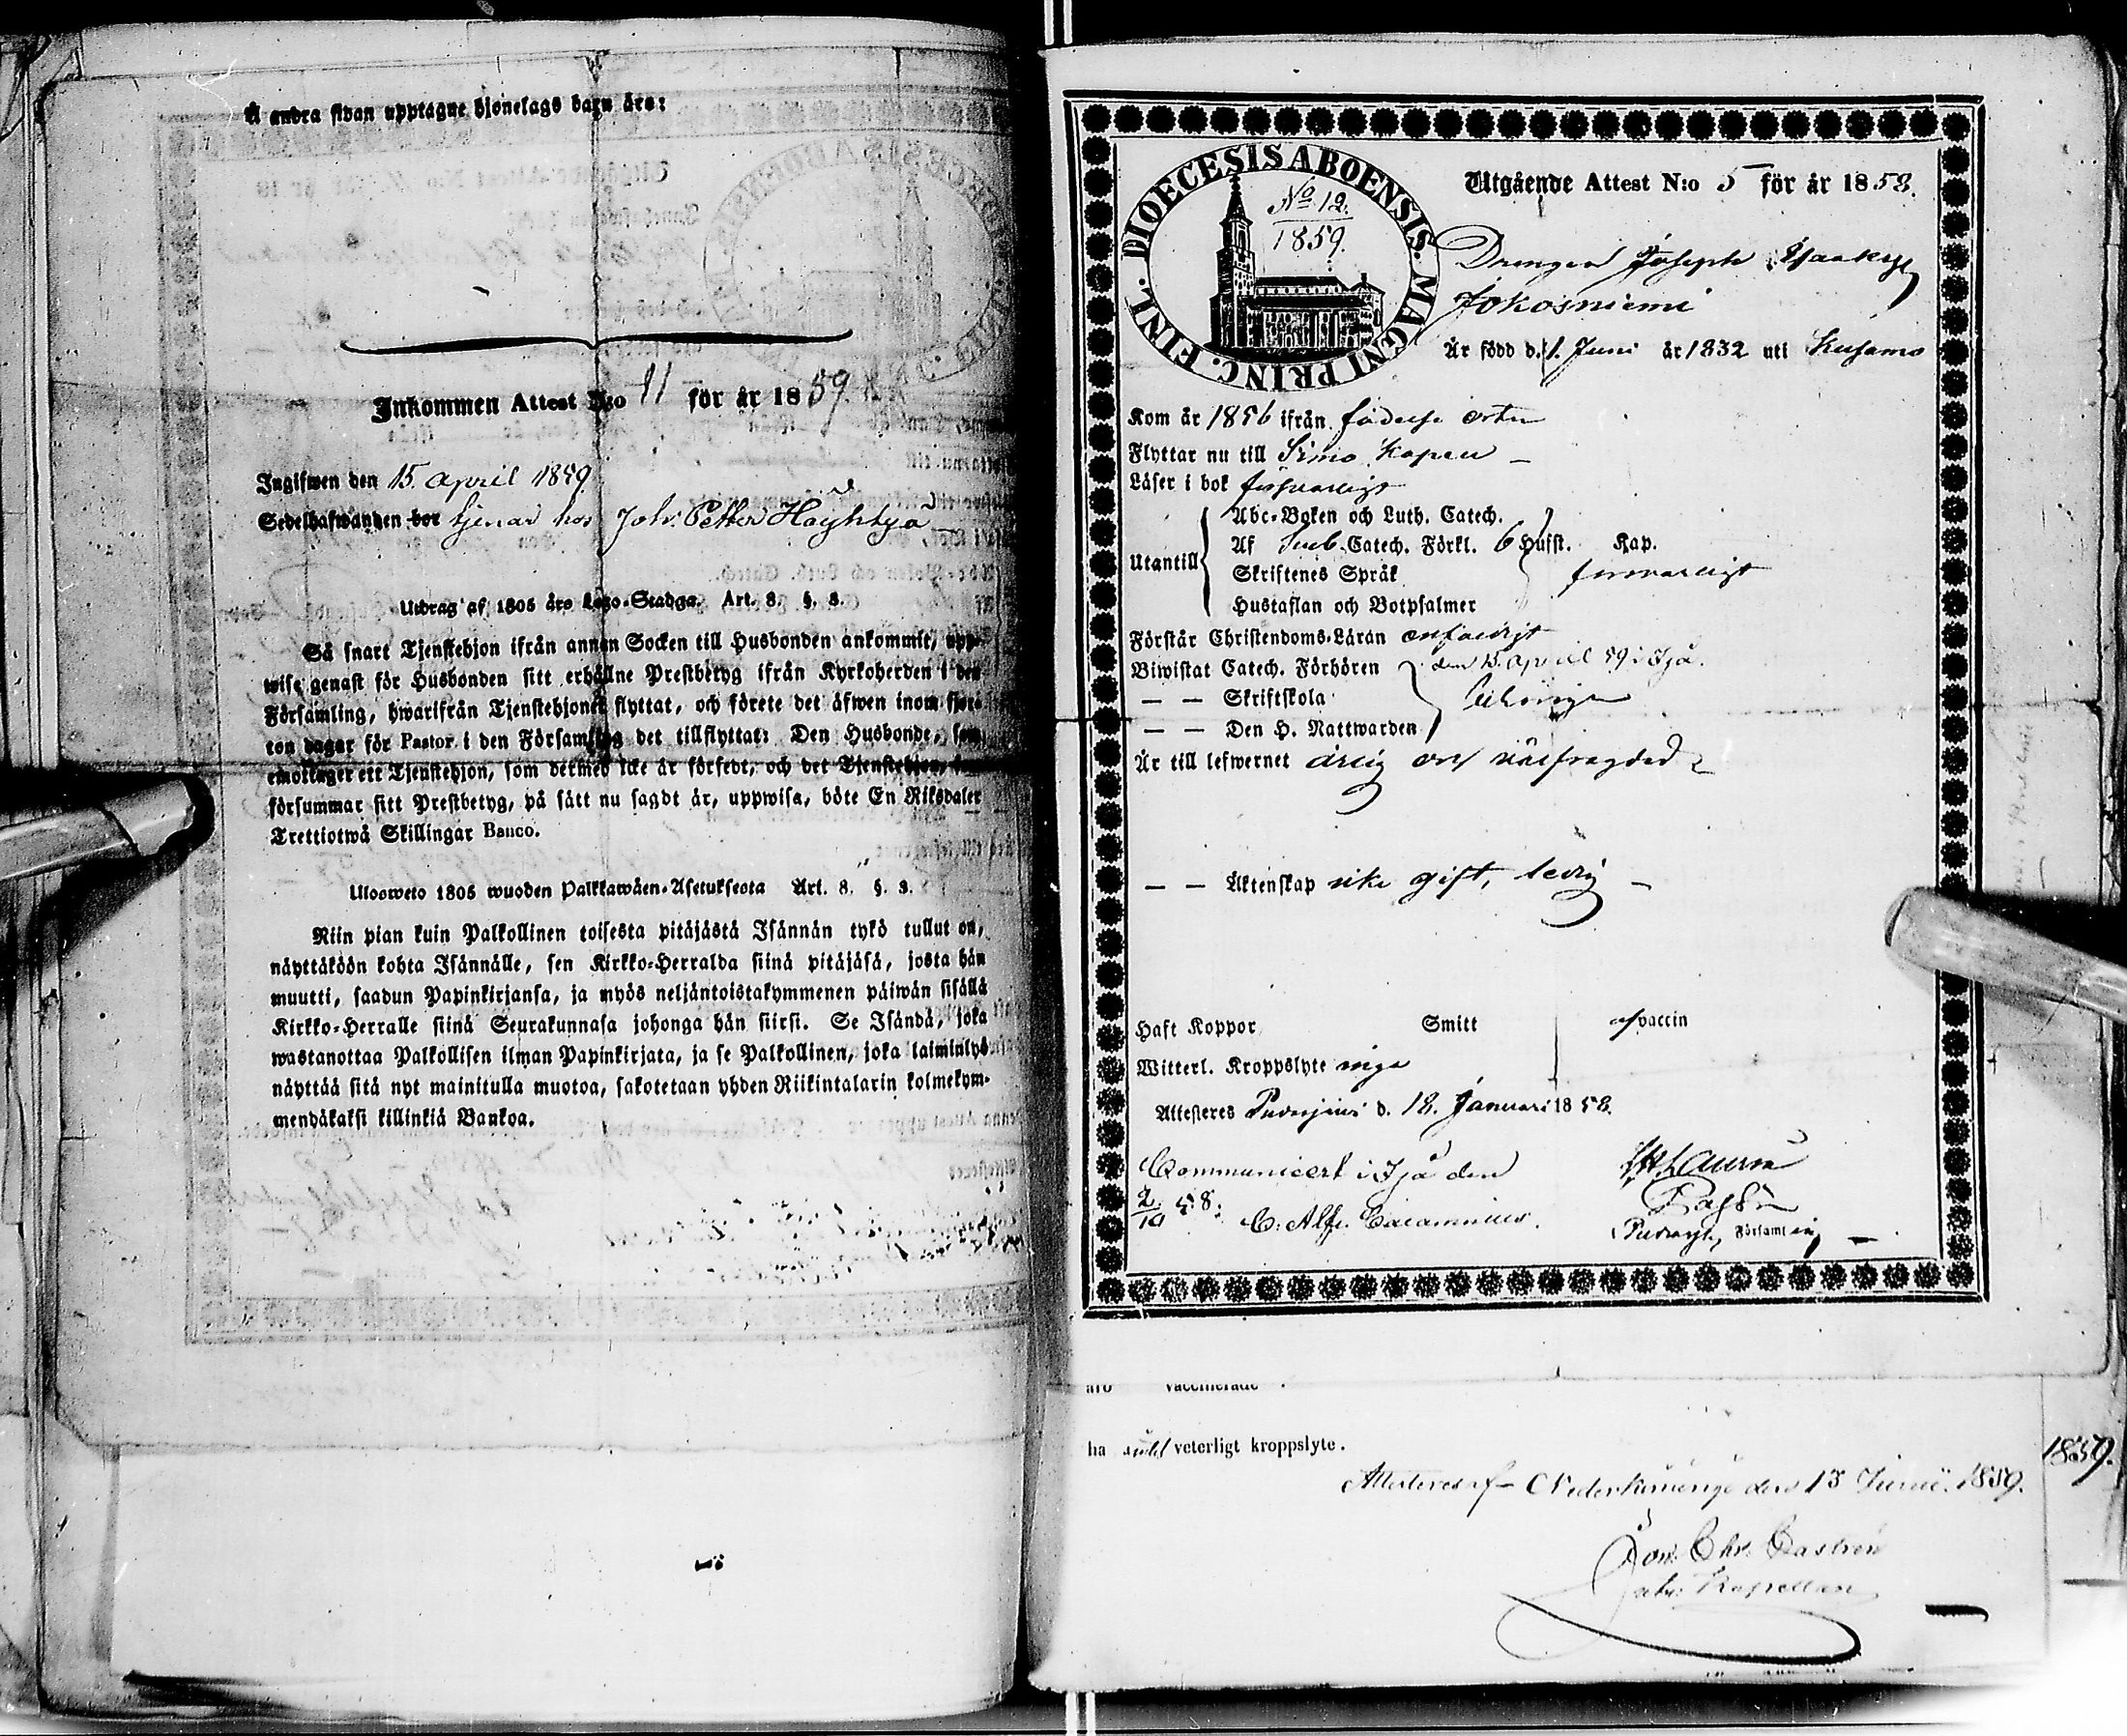 Å andra sidan upptagne hjonelags barn äro:
Inkommen Attest N:o 11 för år 1859.
Ingifwen den 15. April 1859.
Sedelhafwanden bor tjenar hos Joh: Petter Hoyhtya
Utdrag af 1805 års Lego-Stadga. Art. 8. §. 3.
Så snart Tjenstehjon ifrån annan Socken till Husbonden ankommit, upp-
wise genast för Husbonden sitt erhållne Prestbetyg ifrån Kyrkoherden i den
Församling, hwarifrån Tjenstehjonet flyttat, och förete det äfwen inom fjor-
ton dagar för Pastor i den Församling det tillflyttat: Den Husbonde, som
emottager ett Tjenstehjon, som dermed icke är försedt, och det Tjenstehjon,
försummar sitt Prestbetyg, på sätt nu sagdt är, uppwisa, böte En Riksdaler
Trettiotwå Skillingar Banco.
Ulosweto 1805 wuoden Palkkawäen-Asetuksesta Art. 8. §. 3.
Niin pian kuin Palkollinen toisesta pitäjästä Isännän tykö tullut on,
näyttäköön kohta Isännälle, sen Kirkko-Herralda siinä pitäjäsä, josta hän
muutti, saadun Papinkirjansa, ja myös neljäntoistakymmenen päiwän sisällä
Kirkko-Herralle siinä Seurakunnasa johonga hän siirsi. Se Isändä, joka
wastanottaa Palkollisen ilman Papinkirjata, ja se Palkollinen, joka laiminlyö
näyttää sitä nyt mainitulla muotoa, sakotetaan yhden Riikintalarin kolmekym-
mendäkaksi killinkiä Bankoa.
DIOECESIS ABOENSIS. MAGNI PRINC. FINL.
No 12.
1859.
Utgående Attest N:o 5 för år 1858.
Drengen Joseph
Jokosniemi
Är född d. 1. Juni år 1832 uti Kusamo
Kom år 1856 ifrån födelse orten
Flyttar nu till Simo Kapell
Läser i bok försvarligt
Utantill
Abc-Boken och Luth. Catech.
Af Catech. Förkl. 6 Hufst. Kap.
Skriftenes Språk försvarligt
Hustaflan och Botpsalmer
Förstår Christendoms-Läran enfaldigt
Biwistat Catech. Förhören den 15. April 59 i Ijå.
— — Skriftskola
— — Den H. Nattwarden
Är till lefwernet ärlig och välfrägdad
— — Äktenskap icke gift, ledig —
Haft Koppor Smitt af vaccin
Witterl. Kroppslyte inga
Attesteres Pudasjärvi d. 18. Januari 1858.
Communicerat i Ijå den
2/10 58:
Församling
äro vaccinerade .
ha intet veterligt kroppslyte.
Attesteras af Nederkiminge den 13 Junii. 1859.
Joh: Chr. Castrén
Kapellan
1859.